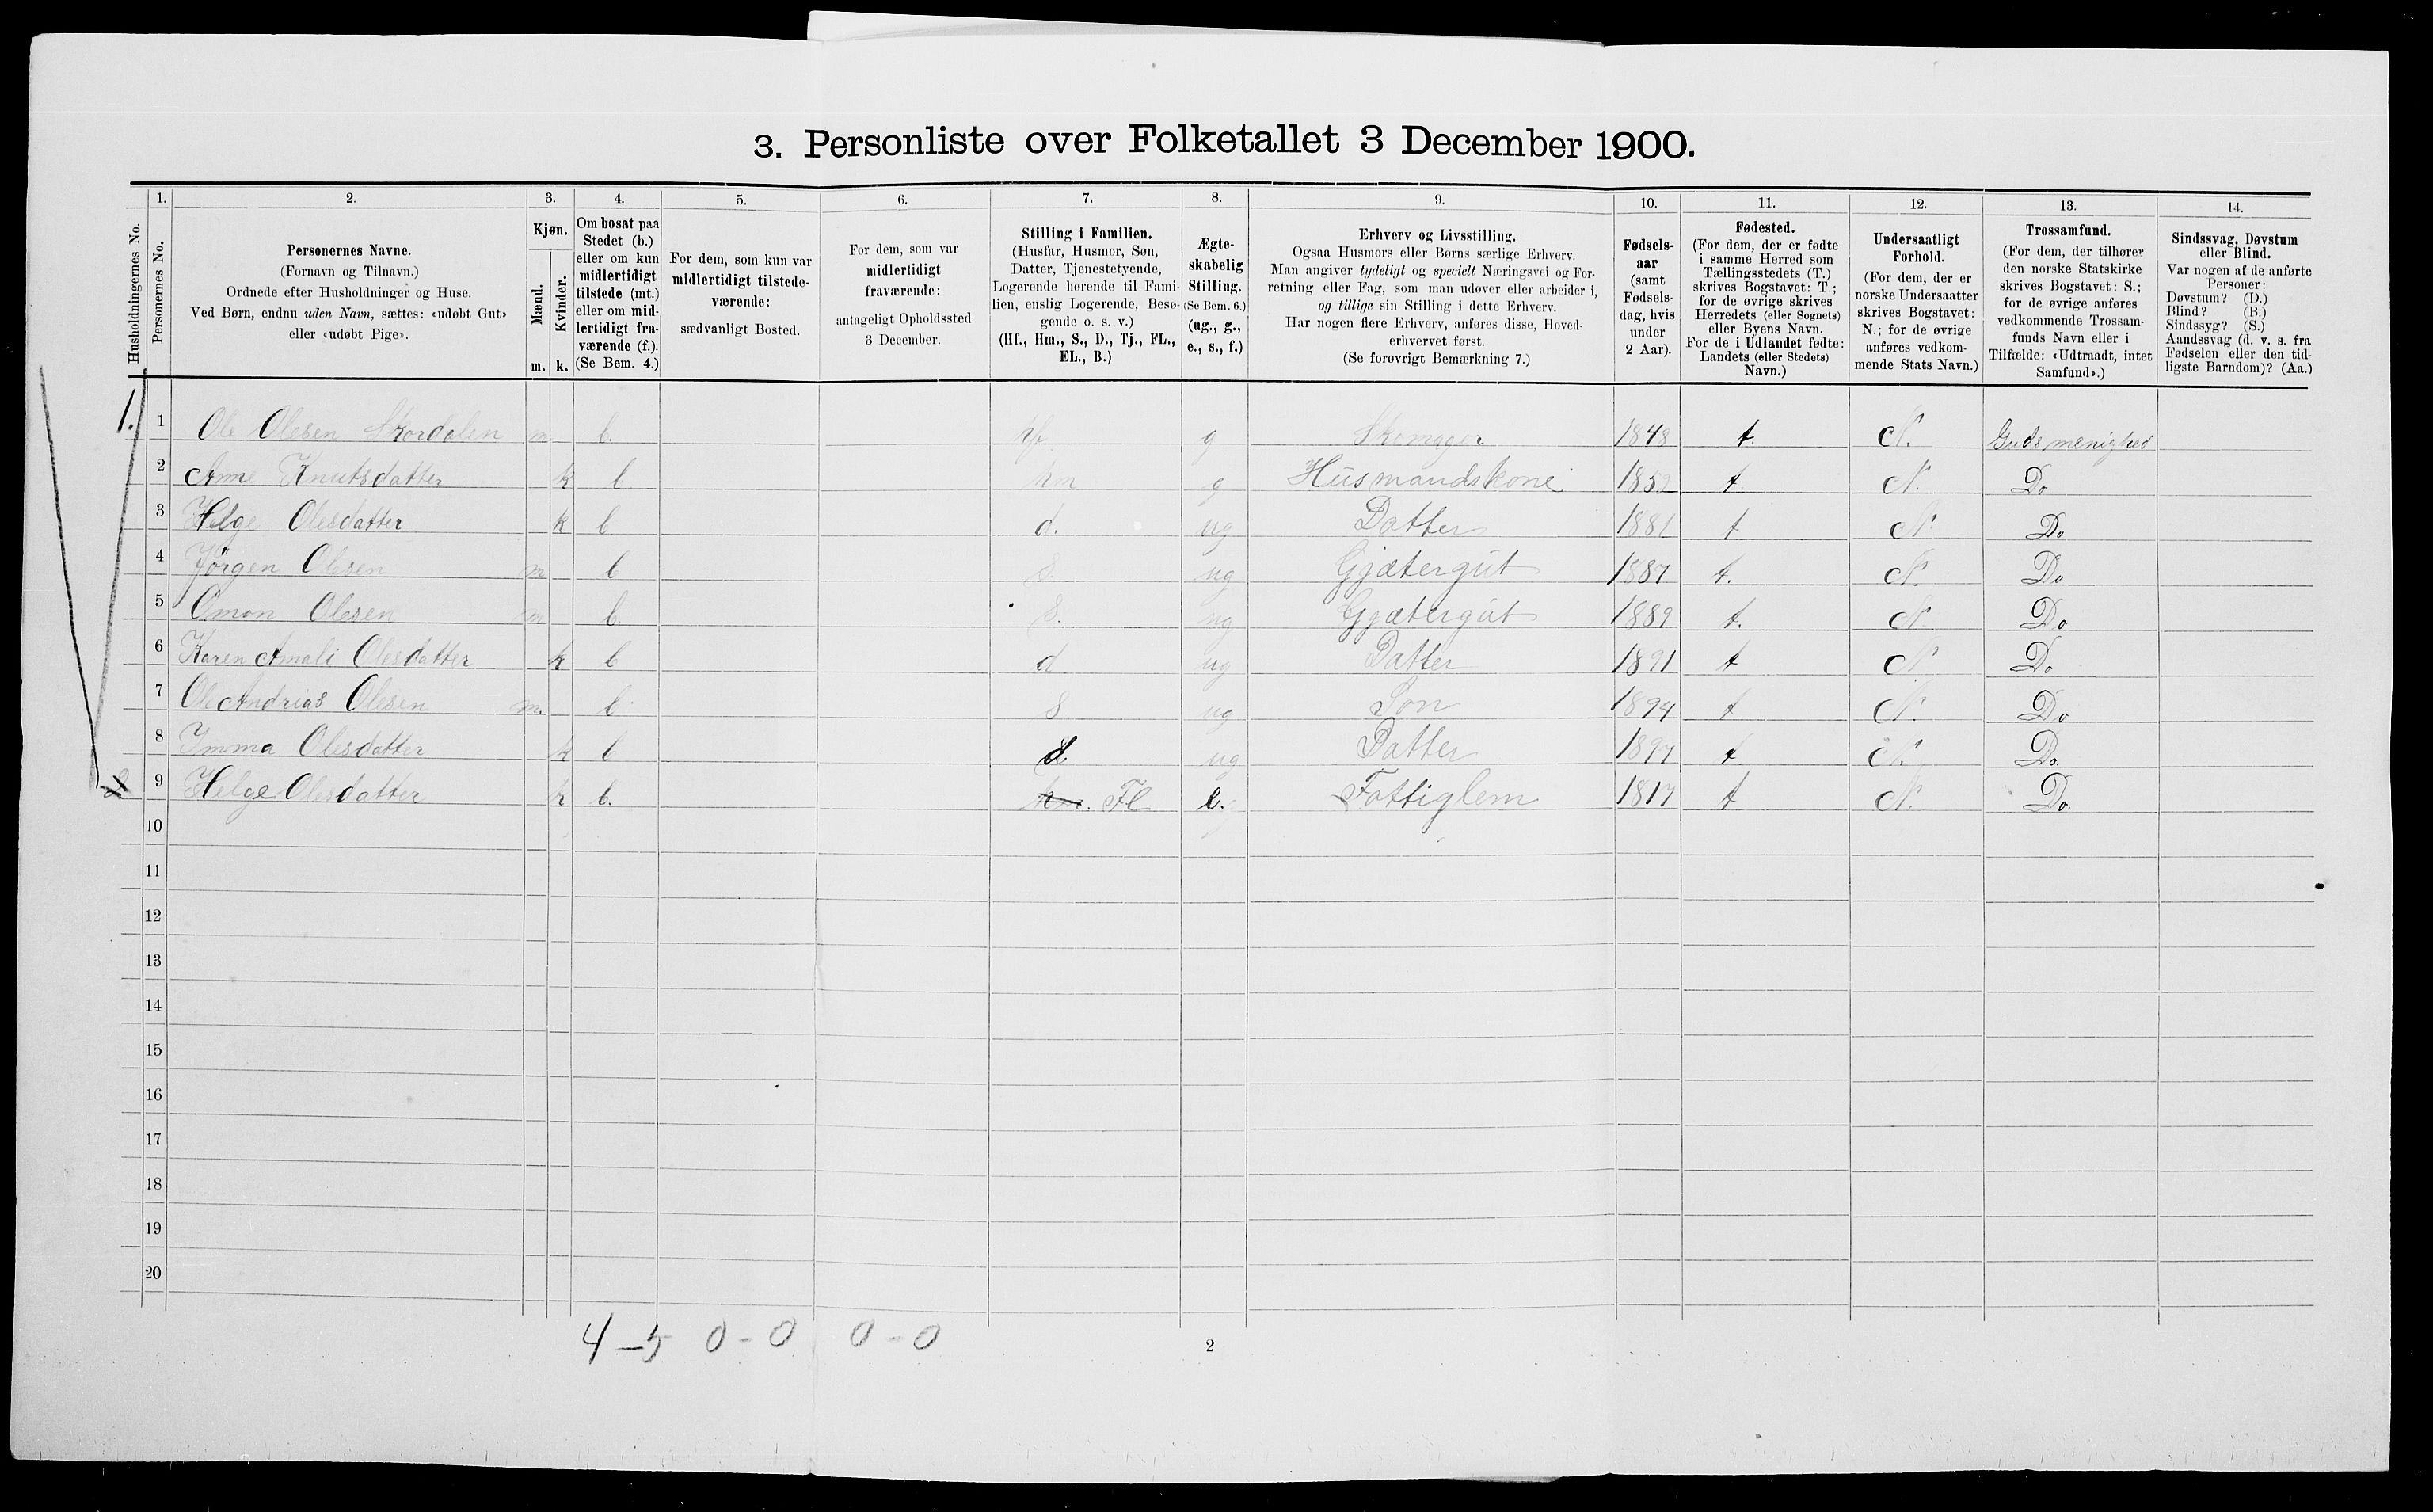 3. Personliste over Folketallet 3 December 1900.
1. 2. 3. 4. 5. 6. 7. 8. 9. 10. 11. 12. 13. 14.
Husholdningernes No.
Personernes No.
Personernes Navne.
(Fornavn og Tilnavn.)
Ordnede efter Husholdninger og Huse.
Ved Børn, endnu uden Navn, sættes: «udøbt Gut»
eller «udøbt Pige».
Kjøn.
Mænd.
Kvinder.
m. k.
Om bosat paa
Stedet (b.)
eller om kun
midlertidigt
tilstede (mt.)
eller om mid-
lertidigt fra-
værende (f.).
(Se Bem. 4.)
For dem, som kun var
midlertidigt tilstede-
værende:
sædvanligt Bosted.
For dem, som var
midlertidigt
fraværende:
antageligt Opholdssted
3 December.
Stilling i Familien.
(Husfar, Husmor, Søn,
Datter, Tjenestetyende,
Logerende hørende til Fami-
lien, enslig Logerende, Besø-
gende o. s. v.)
(Hf., Hm., S., D., Tj., FL.,
EL., B.)
Ægte-
skabelig
Stilling.
(Se Bem. 6.)
(ug., g.,
e., s., f.)
Erhverv og Livsstilling.
Ogsaa Husmors eller Børns særlige Erhverv.
Man angiver tydeligt og specielt Næringsvei og For-
retning eller Fag, som man udøver eller arbeider i,
og tillige sin Stilling i dette Erhverv.
Har nogen flere Erhverv, anføres disse, Hoved-
erhvervet først.
(Se forøvrigt Bemærkning 7.)
Fødsels-
aar
(samt
Fødsels-
dag, hvis
under
2 Aar).
Fødested.
(For dem, der er fødte
i samme Herred som
Tællingsstedets (T.)
skrives Bogstavet: T.;
for de øvrige skrives
Herredets (eller Sognets)
eller Byens Navn.
For de i Udlandet fødte:
Landets (eller Stedets)
Navn.)
Undersaatligt
Forhold.
(For dem, der er
norske Undersaatter
skrives Bogstavet:
N.; for de øvrige
anføres vedkom-
mende Stats Navn.)
Trossamfund.
(For dem, der tilhører
den norske Statskirke
skrives Bogstavet: S.;
for de øvrige anføres
vedkommende Trossam-
funds Navn eller i
Tilfælde: «Udtraadt, intet
Samfund».)
Sindssvag, Døvstum
eller Blind.
Var nogen af de anførte
Personer:
Døvstum? (D.)
Blind? (B.)
Sindssyg? (S.)
Aandssvag (d. v. s. fra
Fødselen eller den tid-
ligste Barndom)? (Aa.)
1. 1 Ole Olesen Skordalen m b. hf g Skomager 1848 t. N. Guds menighed
2 Anne Knutsdatter k b hm g Husmandskone 1852 t N. Do
3 Helge Olesdatter k b d. ug Datter 1881 t N. Do
4 Jørgen Olesen m b s. ug Gjætergut 1887 t. N. Do
5 Omon Olesen m b s. ug Gjætergut 1889 t. N Do
6 Karen Amali Olesdatter k b d ug Datter 1891 t N. Do
7 Ole Andrias Olesen m. b s ug Søn 1894 t N. Do
8 Imma Olesdatter k b d. ug Datter 1897 t N. Do.
2 9 Helge Olesdatter k b. hm. Fl e. Fattiglem 1817 t N. Do.
10
11
12
13
14
15
16
17
18
19
20
4 - 5 0 - 0 0 - 0
2